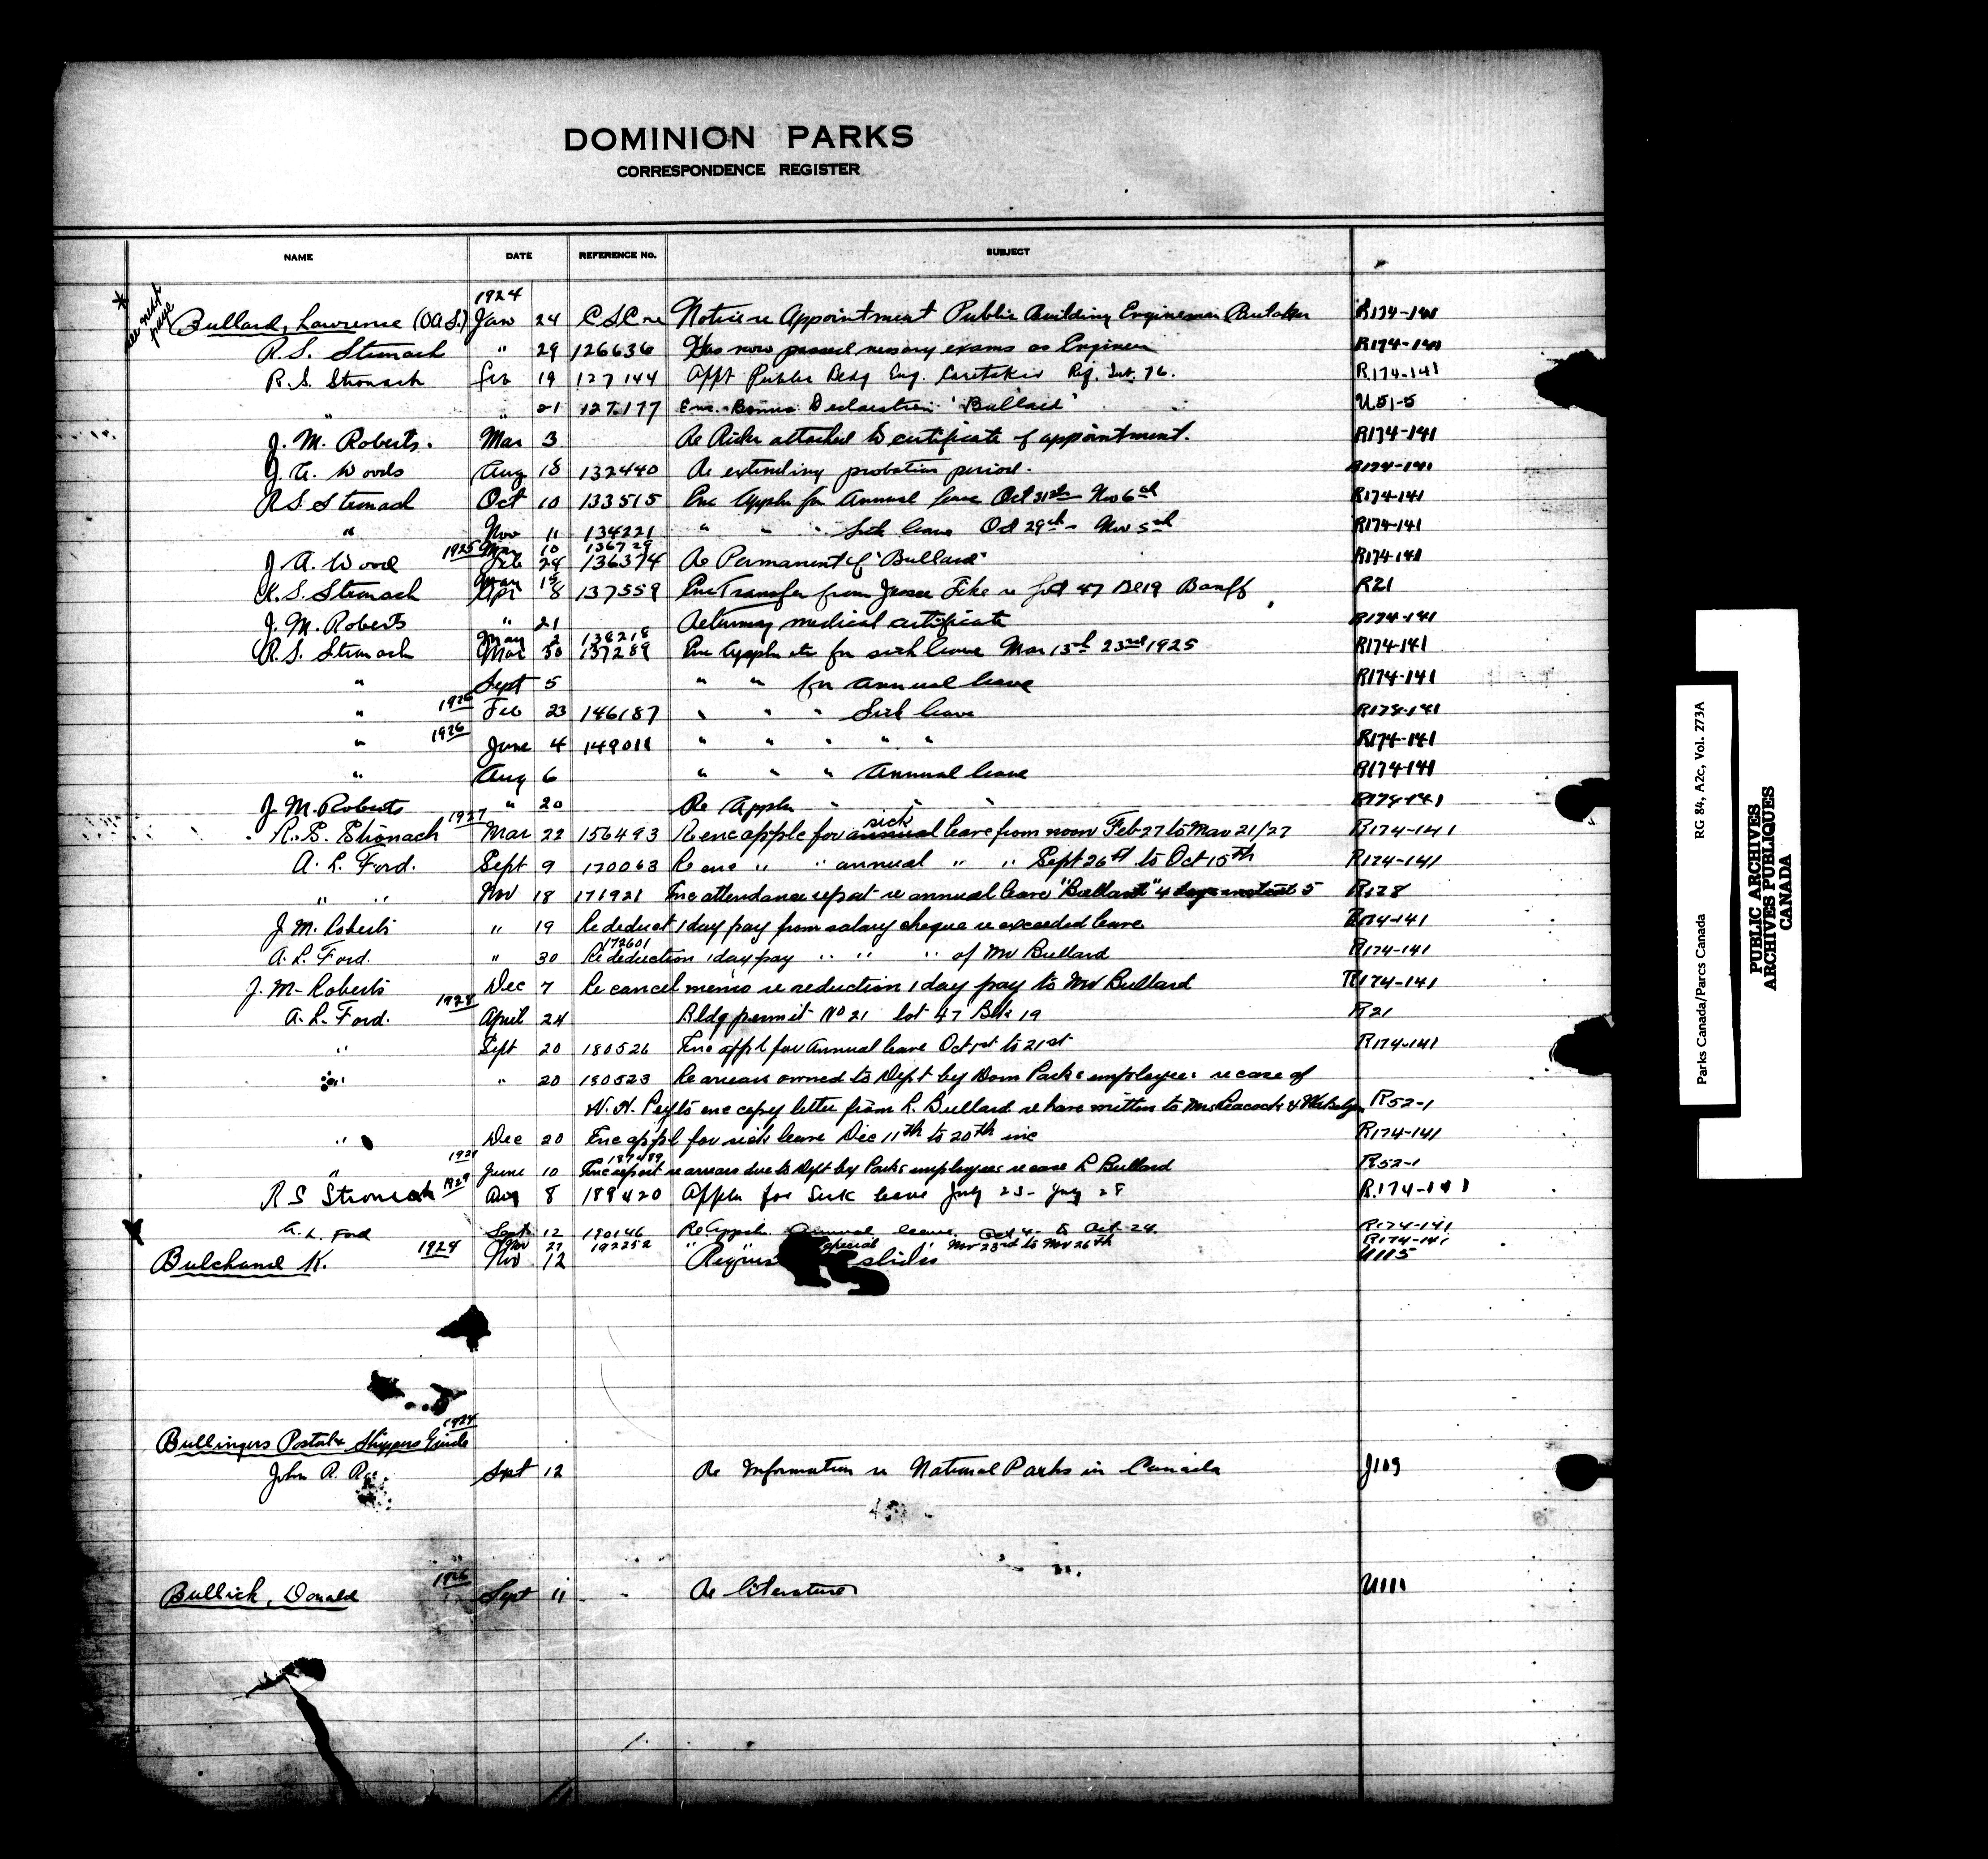 DOMINION PARKS
CORRESPONDENCE REGISTER
NAME DATE REFERENCE No. SUBJECT
* see next page
1924
Bullard, Lawrence (OAS.) Jan 24 CSC re Notice re Appointment Public Building Engineman R174-141
R.S. Stronach " 29 126636 Has now passed exams as Engineer R174-141
R.S. Stronach Feb 19 127144 Appt Public Bldg Eng. Caretaker R174-141
" " 21 127177 Enc. Bonus Declaration "Bullard" U51-5
J. M. Roberts. Mar 3 Re Rider attached to certificate of appointment. R174-141
J. A. Woods Aug 18 132440 Re extending probation period. R174-141
R.S. Stronach Oct 10 133515 Enc Appln for Annual leave Oct 31st - Nov 6th R174-141
" Nov 11 134221 " " " Sick leave Oct 29th - Nov 5th R174-141
1925 Mar 10 136729
J. A. Wood Feb 24 136374 Re Permanent of "Bullard" R174-141
R.S. Stronach Apr 8 137559 Enc Transfer from Fike re Lot 47 Bl 19 Banff R21
J. M. Roberts " 21 Returning medical certificate R174-141
May 2 138218
R.S. Stronach Mar 30 137289 Enc Appln for sick leave Mar 15th 23rd 1925 R174-141
" Sept 5 " " for annual leave R174-141
" 1926 Feb 23 146187 " " " Sick leave R174-141
" 1926 June 4 149011 " " " " " R174-141
" Aug 6 " " " Annual leave R174-141
J. M. Roberts " 20 Re Appln " " " R174-141
1927 sick
R. S. Stronach Mar 22 156493 Re enc apple for annual leave from noon Feb 27 to Mar 21/27 R174-141
A. L. Ford. Sept 9 170063 Re enc " " annual " " Sept 26th to Oct 15th R174-141
" " Nov 18 171921 Enc attendance report re annual leave "Bullard" 4 days instead 5 R178
J. M. Roberts " 19 Re deduct 1 day pay from salary cheque re exceeded leave R174-141
172601
A. L. Ford. " 30 Re deduction 1 day pay " " " of Mr Bullard R174-141
J. M. Roberts Dec 7 Re cancel memo re reduction 1 day pay to Mr Bullard R174-141
1928
A. L. Ford. April 24 Bldg permit No 21 lot 47 Blk 19 R21
" Sept 20 180526 Enc appl for Annual leave Oct 1st to 21st R174-141
" " 20 180523 Re arrears owned to Dept by Dom Parks employees re case of
enc copy letter from L. Bullard re have written to R52-1
" Dec 20 Enc appl for sick leave Dec 11th to 20th inc R174-141
" June 10 Enc report re arrears due to Dept by Parks employees re case L Bullard R52-1
R S Stronach 1929 Aug 8 189420 Appln for Sick leave July 23 - July 28 R.174-141
A. L. Ford Sept 12 190146 Re Appln Annual leave Oct 4 to Oct 24. R174-141
Nov 27 192252 " " special " Nov 23rd to Nov 26th R174-141
Bulchand K. 1924 Nov 12 slides U115
1924
Bullingers Postal & Shippers Guide
John R. Sept 12 Re Information re National Parks in Canada J109
1926
Bullick, Donald Sept 11 Re literature U111
Parks Canada/Parcs Canada RG 84, A2c, Vol. 273A
PUBLIC ARCHIVES
ARCHIVES PUBLIQUES
CANADA